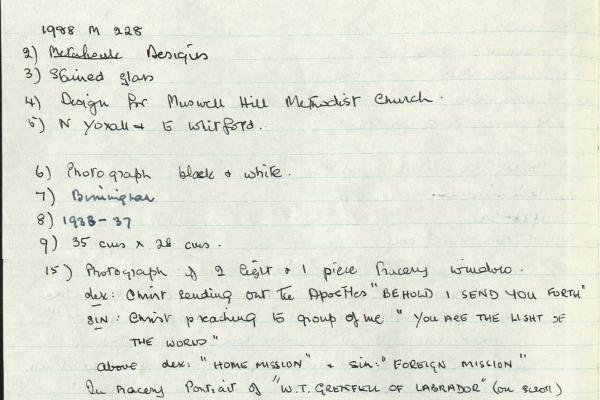 1988 M 228
2) Metalwork Designs
3) Stained glass
4) Design for Muswell Hill Methodist Church.
5) N Yoxall & E Whitford.
6) Photograph black & white.
7) Birmingham
8) 1938-37
9) 35 cms x 28 cms.
15) Photograph of 2 light & 1 piece tracery window.
dex: Christ sending out the Apostles "BEHOLD I SEND YOU FORTH"
SIN: Christ preaching to group of me " YOU ARE THE LIGHT OF
THE WORLD"
above dex: "HOME MISSION" & sin: "FOREIGN MISSION"
In tracery Portrait of "W.T. GRENFELL OF LABRADOR" (on scroll)